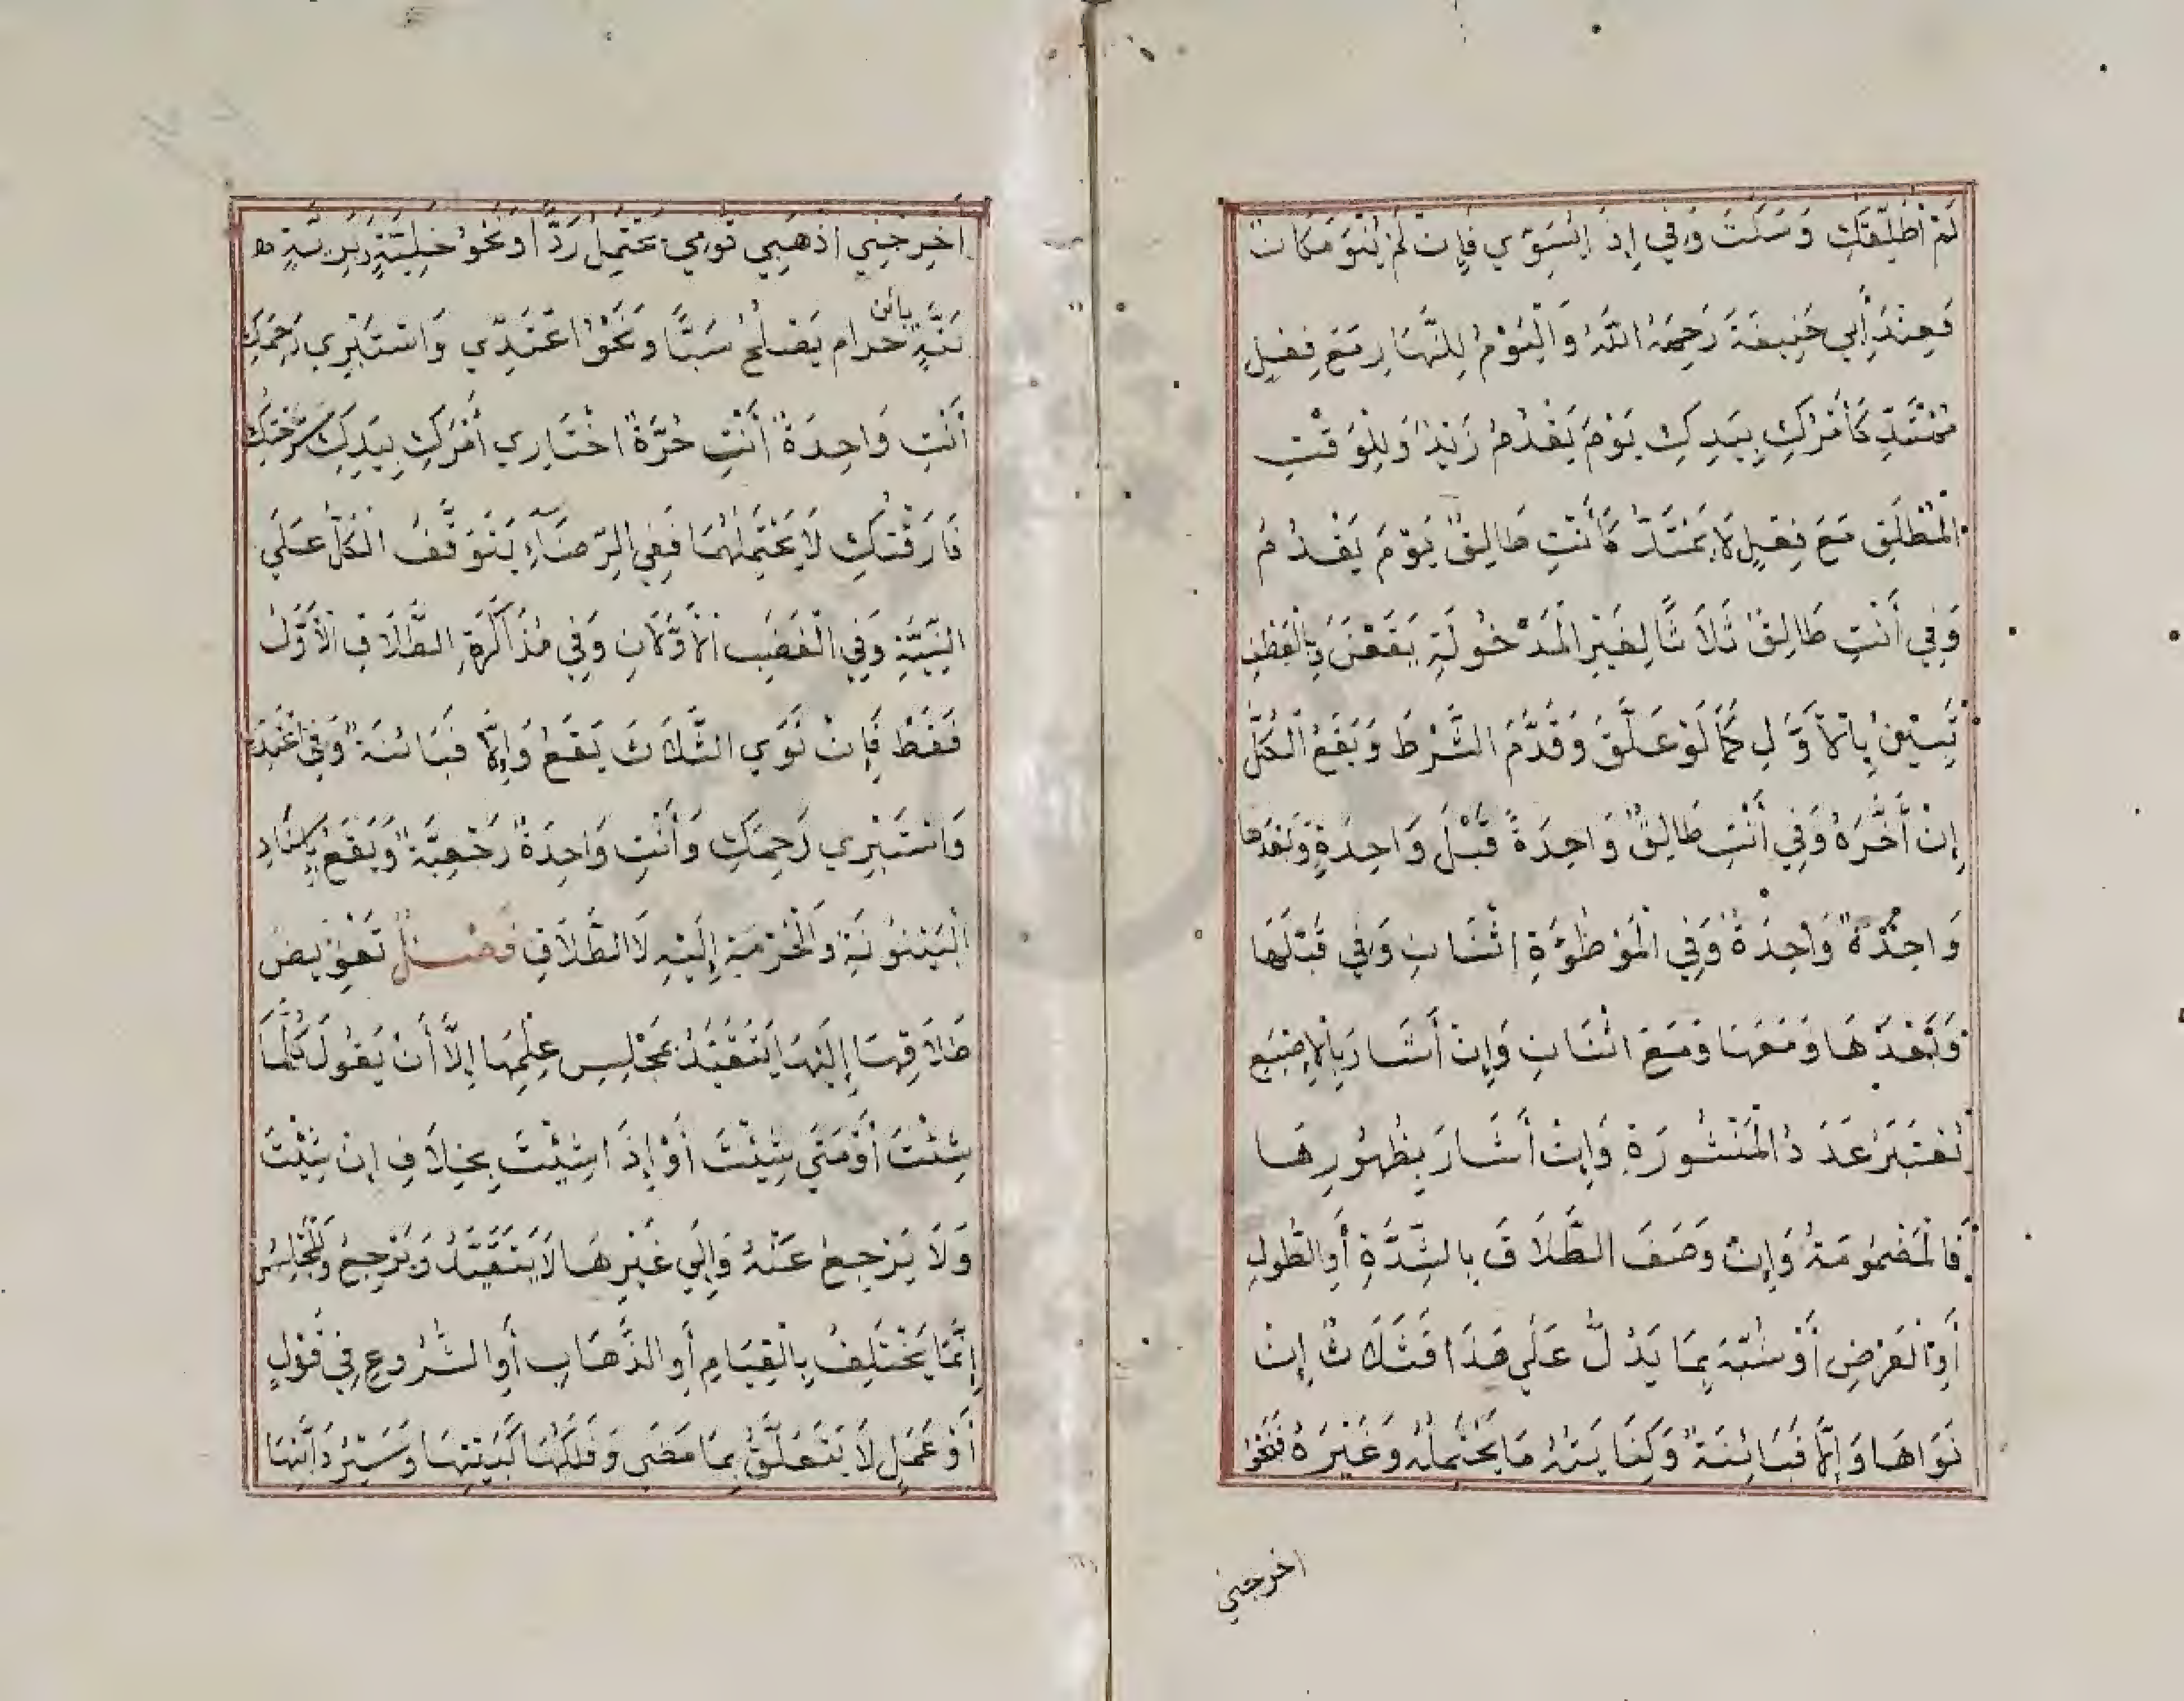 لَمْ أُطَلِّقْكِ وَسَكَتَ وَفِي إِذَا يَنْوِي فَإِنْ لَمْ يَنْوِ فَكَانْ
فَعِنْدَ أَبِي حَنِيفَةَ رَحِمَهُ اللَّهُ وَالْيَوْمُ لِلنَّهَارِ مَعَ فِعْلٍ
مُمْتَدٍّ كَأَمْرُكِ بِيَدِكِ يَوْمَ يَقْدُمُ زَيْدٌ وَلِلْوَقْتِ
الْمُطْلَقِ مَعَ فِعْلٍ لَا يَمْتَدُّ كَأَنْتِ طَالِقٌ يَوْمَ يَقْدُمُ
وَفِي أَنْتِ طَالِقٌ ثَلَاثًا لِغَيْرِ الْمَدْخُولَةِ يَقَعْنَ وَبِالْعَطْفِ
تَبِينُ بِالْأَوَّلِ كَمَا لَوْ عَلَّقَ وَقَدَّمَ الشَّرْطَ وَيَقَعُ الْكُلُّ
إِنْ أَخَّرَهُ وَفِي أَنْتِ طَالِقٌ وَاحِدَةً قَبْلَ وَاحِدَةٍ وَبَعْدَها
وَاحِدَةٌ وَاحِدَةٌ وَفِي الْمَوْطُوءَةِ اثْنَتَانِ وَفِي قَبْلَهَا
وَبَعْدَهَا وَمَعَهَا وَمَعَ اثْنَتَانِ وَإِنْ أَشَارَ بِالْإِصْبَعِ
يُعْتَبَرُ عَدَدُ الْمَنْشُورَةِ وَإِنْ أَشَارَ بِظُهُورِهَا
فَالْمَضْمُومَةُ وَإِنْ وَصَفَ الطَّلَاقَ بِالشِّدَّةِ أَوِ الطُّولِ
أَوِ الْعَرْضِ أَوْ شَبَّهَ بِمَا يَدُلُّ عَلَي هَذَا فَثَلَاثٌ إِنْ
نَوَاهَا وَإِلَّا فَبَائِنَةٌ وَكِنَايَتُهُ مَا يَحْتَمِلُهُ وَغَيْرَهُ فَنَحْوُ
اخرجني
اُخْرُجِي اذْهَبِي قُومِي يَحْتَمِلُ رَدًّا وَنَحْوُ خَلِيَّةٍ بَرِيَّةٍ
بَتَّةٍ بائن حَرام يَصْلُحُ سَبًّا وَنَحْوُ اعْتَدِّي وَاسْتَبْرِي رَحِمَكِ
أَنْتِ وَاحِدَةٌ أَنْتِ حُرَّةٌ اخْتَارِي أَمْرُكِ بِيَدِكِ سَرَّحْتُكِ
فَارَقْتُكِ لَا يَحْتَمِلُهُمَا فَفِي الرِّضَاءِ يَتَوَقَّفُ الْكُلُّ عَلَي
النِّيَّةِ وَفِي الْغَضَبِ الْأَوَّلَانِ وَفِي مُذَاكَرَةِ الطَّلَاقِ الْأَوَّلُ
فَقَطْ فَإِنْ نَوَي الثَّلَاثَ يَقَعُ وَإِلَّا فَبَائِنَةٌ وَفِي اعْتَدِّ
وَاسْتَبْرِي رَحِمَكِ وَأَنْتِ وَاحِدَةٌ رَجْعِيَّةٌ وَيَقَعُ بِإِسْنَادِ
الْبَيْنُونَةِ وَالْحُرْمَةِ إِلَيْهِ لَا الطَّلَاقِ فَصْلٌ تَفْوِيضُ
طَلَاقِهَا إِلَيْهَا يَتَقَيَّدُ بِمَجْلِسِ عِلْمِهَا إِلَّا أَنْ يَقُولَ كُلَّمَا
شِئْتَ أَوْ مَتَي شِئْتَ أَوْ إِذَا شِئْتَ بِخِلَافِ إِنْ شِئْتَ
وَلَا يَرْجِعُ عَنْهُ وَإِلَي غَيْرِهَا لَا يَتَقَيَّدُ وَيَرْجِعُ وَالْمَجْلِسُ
إِنَّمَا يَخْتَلِفُ بِالْقِيَامِ أَوِ الذَّهَابِ أَوِ الشُّرُوعِ فِي قَوْلٍ
أَوْ عَمَلٍ لَا يَتَعَلَّقُ بِمَا مَضَي وَفُلْكُهَا كَبَيْتِهَا وَسَيْرُ دَابَّتِهَا